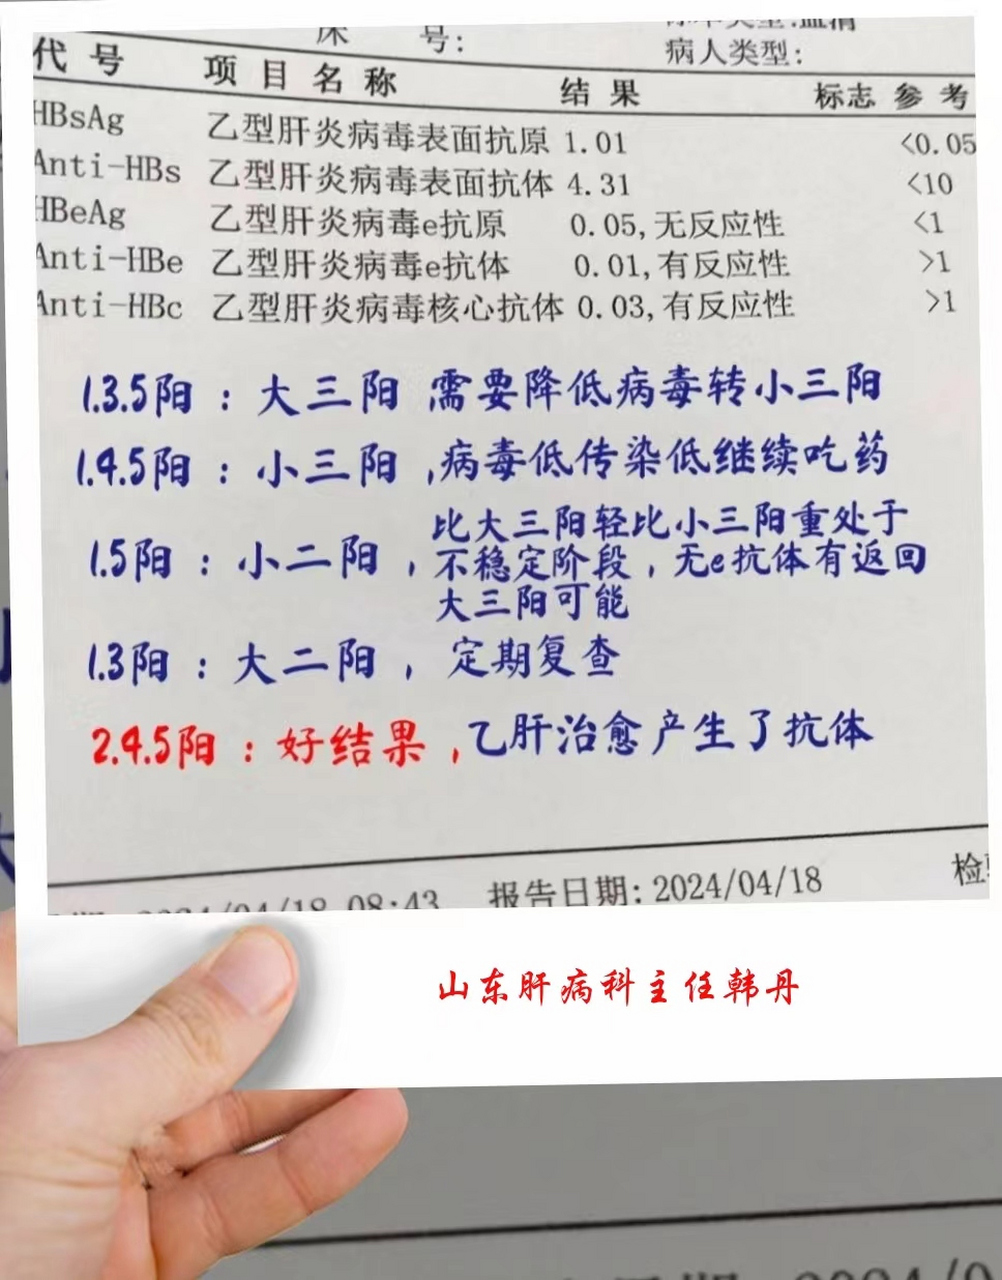 床 号:
病人类型:
代号 项目名称 结果 标志 参考
HBsAg 乙型肝炎病毒表面抗原 1.01 <0.05
Anti-HBs 乙型肝炎病毒表面抗体 4.31 <10
HBeAg 乙型肝炎病毒e抗原 0.05,无反应性 <1
Anti-HBe 乙型肝炎病毒e抗体 0.01,有反应性 >1
Anti-HBc 乙型肝炎病毒核心抗体 0.03,有反应性 >1
1.3.5阳：大三阳 需要降低病毒转小三阳
1.4.5阳：小三阳,病毒低传染低继续吃药
1.5阳：小二阳，比大三阳轻比小三阳重处于
不稳定阶段，无e抗体有返回
大三阳可能
1.3阳：大二阳，定期复查
2.4.5阳：好结果,乙肝治愈产生了抗体
2024/04/18 08:43 报告日期:2024/04/18
山东肝病科主任韩丹